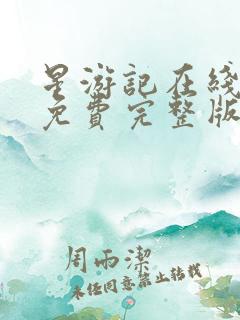 星游記在綫
免費完整版
周雨潔
未经同意禁止转载